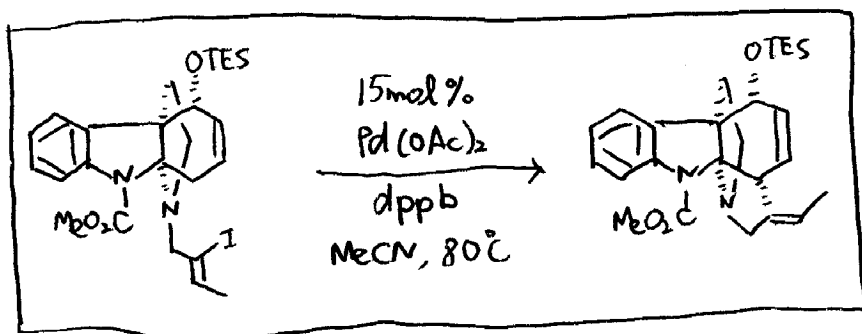 OTES
N
MeO₂C
N
I
15mol%
Pd(OAc)₂
dppb
MeCN, 80℃
OTES
N
MeO₂C
N